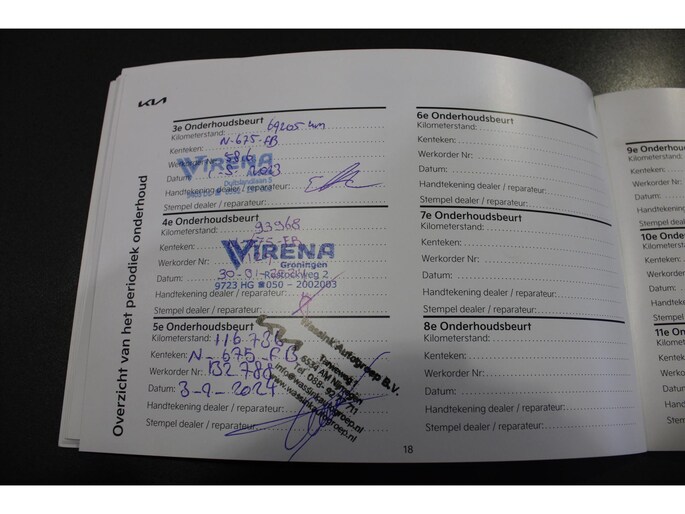 KIA
Overzicht van het periodiek onderhoud
3e Onderhoudsbeurt
Kilometerstand: 69205 km
Kenteken: N-675-FB
Werkorder Nr:
Datum
Handtekening dealer / reparateur:
Stempel dealer / reparateur:
VIRENA
4e Onderhoudsbeurt
Kilometerstand: 93968
Kenteken:
Werkorder Nr:
Datum: 30-01-2024
Handtekening dealer / reparateur:
Stempel dealer / reparateur:
VIRENA
Groningen
Rostockweg 2
9723 HG ☎050 - 2002003
5e Onderhoudsbeurt
Kilometerstand: 116 736
Kenteken: N-675-FB
Werkorder Nr: B2788
Datum: 3-9-2024
Handtekening dealer / reparateur:
Stempel dealer / reparateur:
KIA
Wassink Autogroep B.V.
6534 AM Nijmegen
info@wassinkautogroep.nl
www.wassinkautogroep.nl
6e Onderhoudsbeurt
Kilometerstand:
Kenteken:
Werkorder Nr:
Datum:
Handtekening dealer / reparateur:
Stempel dealer / reparateur:
7e Onderhoudsbeurt
Kilometerstand:
Kenteken:
Werkorder Nr:
Datum:
Handtekening dealer / reparateur:
Stempel dealer / reparateur:
8e Onderhoudsbeurt
Kilometerstand:
Kenteken:
Werkorder Nr:
Datum:
Handtekening dealer / reparateur:
Stempel dealer / reparateur:
18
9e Onderhoud
Kilometerstand
Kenteken:
Werkorder
Datum:
Handteken
Stempel de
10e Onder
Kilometerst
Kenteken:
Werkorder
Datum:
Handteken
Stempel de
11e Onde
Kilometers
Kenteken:
Werkorde
Datum:
Handteke
Stempel